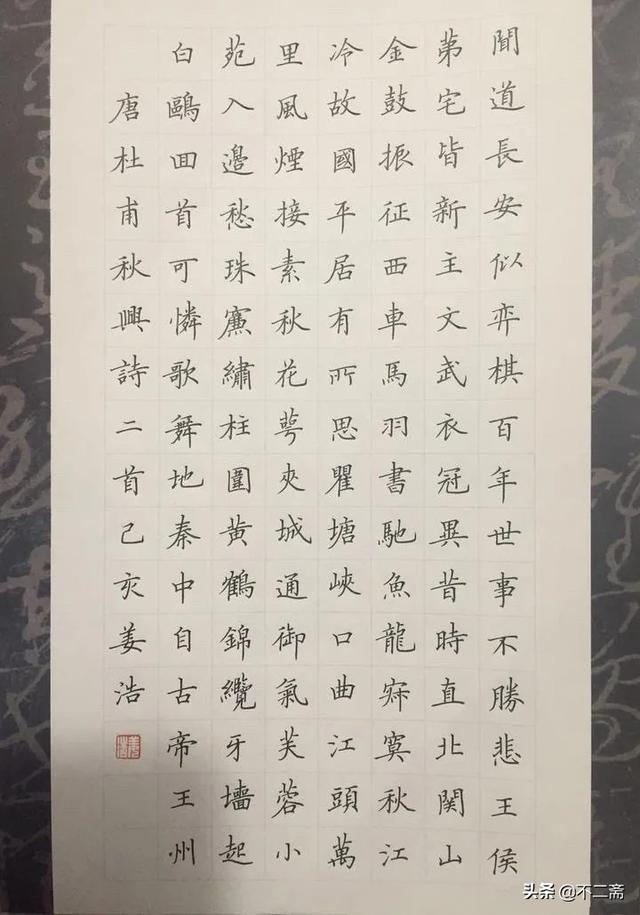 聞道長安似弈棋百年世事不勝悲王侯
苐宅皆新主文武衣冠異昔時直北関山
金鼓振征西車馬羽書馳魚龍寂寞秋江
冷故國平居有所思瞿塘峽口曲江頭萬
里風煙接素秋花萼夾城通御氣芙蓉小
苑入邊愁珠簾繡柱圍黃鶴錦纜牙墻起
白鷗回首可憐歌舞地秦中自古帝王州
唐杜甫秋興詩二首己亥姜浩
头条 @不二斋